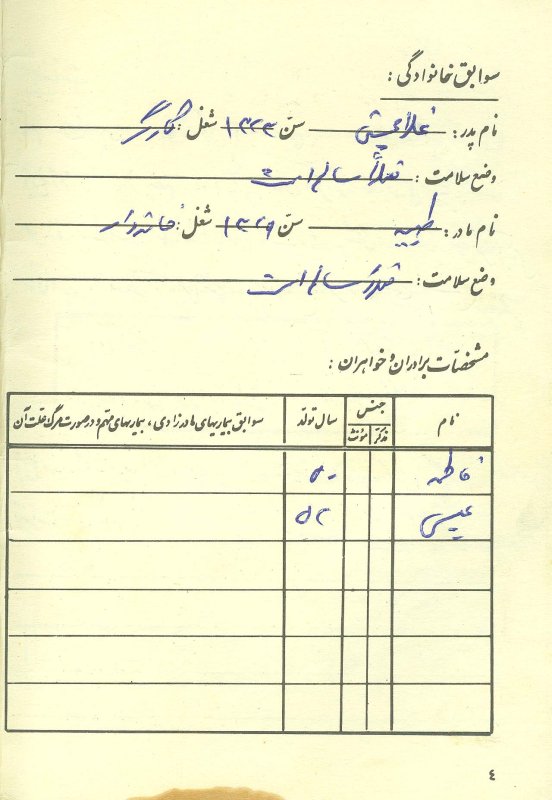 سوابق خانوادگی :
نام پدر : سنّ ۱۳۲۳ شغل : کارگر
وضع سلامت : فعلاً سالم است
نام مادر : طیبه سنّ ۱۳۲۹ شغل : خانه‌دار
وضع سلامت : سالم است
مشخصات برادران و خواهران :
نام جنس سال تولد سوابق بیماریهای مادرزادی ، بیماریهای مهم و در صورت مرگ علت آن
مذکر مؤنث
فاطمه ۵۰
عیسی ۵۲
٤